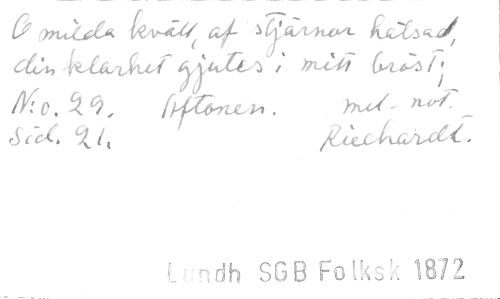 O milda kväll, af stjärnor hälsad,
din klarhet gjutes i mitt bröst;
N:o. 29. Aftonen. mel. not.
Sid. 21. Riechardt.
Lundh SGB Folksk 1872